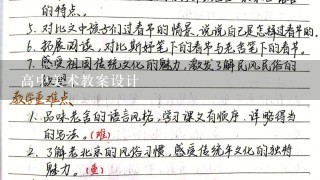 的特点。
5. 对比文中孩子们过春节的情景,说说自己是怎样过春节的。
6. 拓展阅读,对比斯妤笔下的春节与老舍笔下的春节。
7. 感受祖国传统文化的魅力,激发了解民风民俗的
高中美术教案设计
教学重难点
1. 品味老舍的语言风格,学习课文有顺序、详略得当
的写法。(难)
2. 了解老北京的风俗习惯,感受传统年文化的独特
魅力。(重)